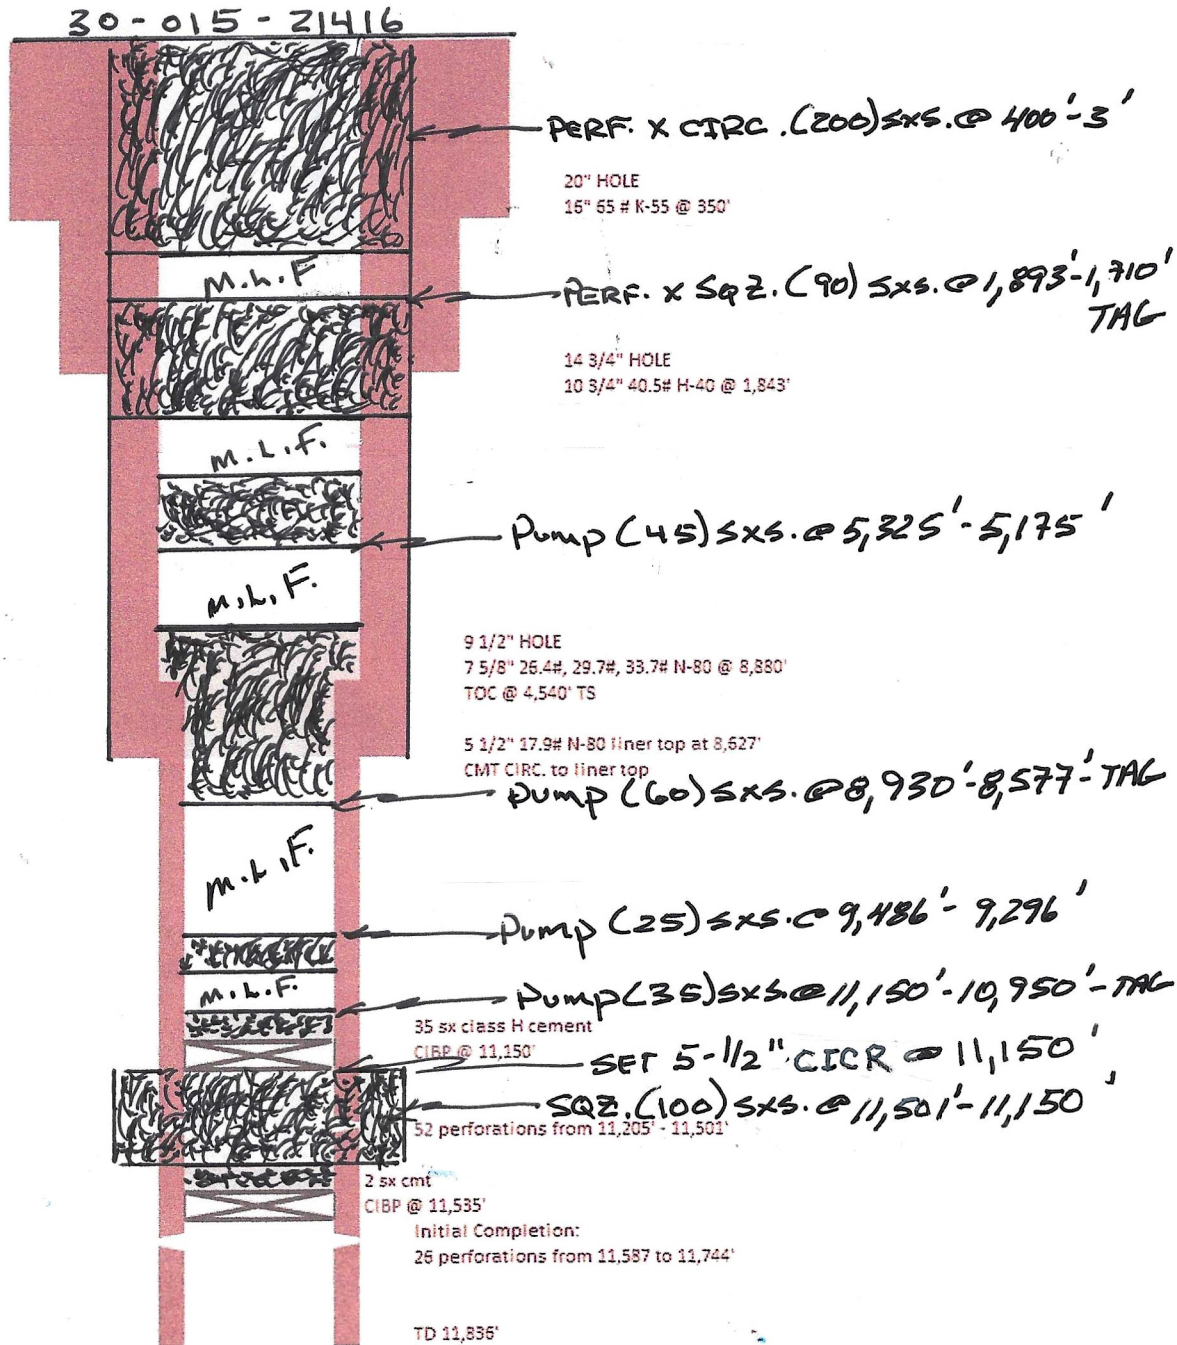 30-015-21416
PERF. X CIRC. (200) SXS. @ 400'-3'
20" HOLE
16" 65 # K-55 @ 350'
M.L.F
PERF. X SQZ. (90) SXS. @ 1,893'-1,710'
TAG
14 3/4" HOLE
10 3/4" 40.5# H-40 @ 1,843'
M.L.F.
Pump (45) SXS. @ 5,325'-5,175'
M.L.F.
9 1/2" HOLE
7 5/8" 26.4#, 29.7#, 33.7# N-80 @ 8,880'
TOC @ 4,540' TS
5 1/2" 17.9# N-80 liner top at 8,627'
CMT CIRC. to liner top
Pump (60) SXS. @ 8,930'-8,577'-TAG
M.L.F.
Pump (25) SXS. @ 9,486'-9,296'
M.L.F.
Pump (35) SXS. @ 11,150'-10,950'-TAG
35 sx class H cement
CIBP @ 11,150'
SET 5-1/2" CICR @ 11,150'
SQZ. (100) SXS. @ 11,501'-11,150'
52 perforations from 11,205' - 11,501'
2 sx cmt
CIBP @ 11,535'
Initial Completion:
26 perforations from 11,587 to 11,744'
TD 11,836'